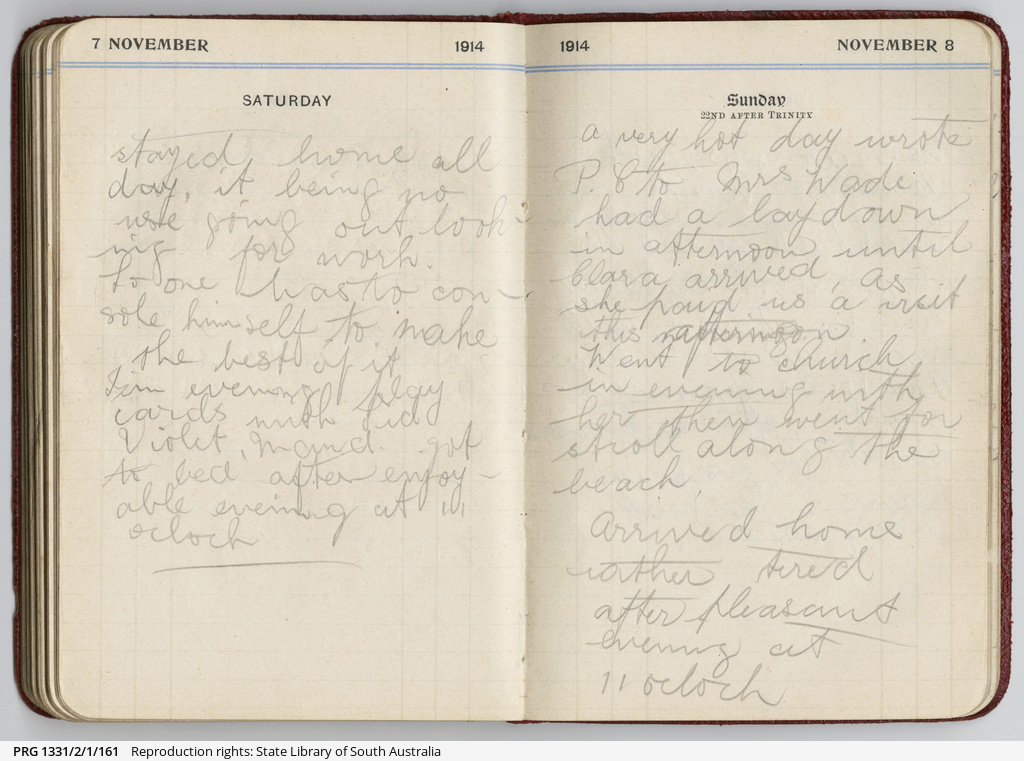 7 NOVEMBER 1914
SATURDAY
stayed home all
day, it being no
use going out look-
ing for work.
So one has to con-
sole himself to make
the best of it
In evening play
cards with Sid
Violet, Maud. got
to bed after enjoy-
able evening at 11
oclock
1914 NOVEMBER 8
Sunday
22ND AFTER TRINITY
a very hot day wrote
P. C to Mrs Wade
had a lay down
in afternoon until
Clara arrived, as
she paid us a visit
this afternoon
Went to church
in evening with
her then went for
stroll along the
beach,
Arrived home
rather tired
after pleasant
evening at
11 oclock
PRG 1331/2/1/161 Reproduction rights: State Library of South Australia